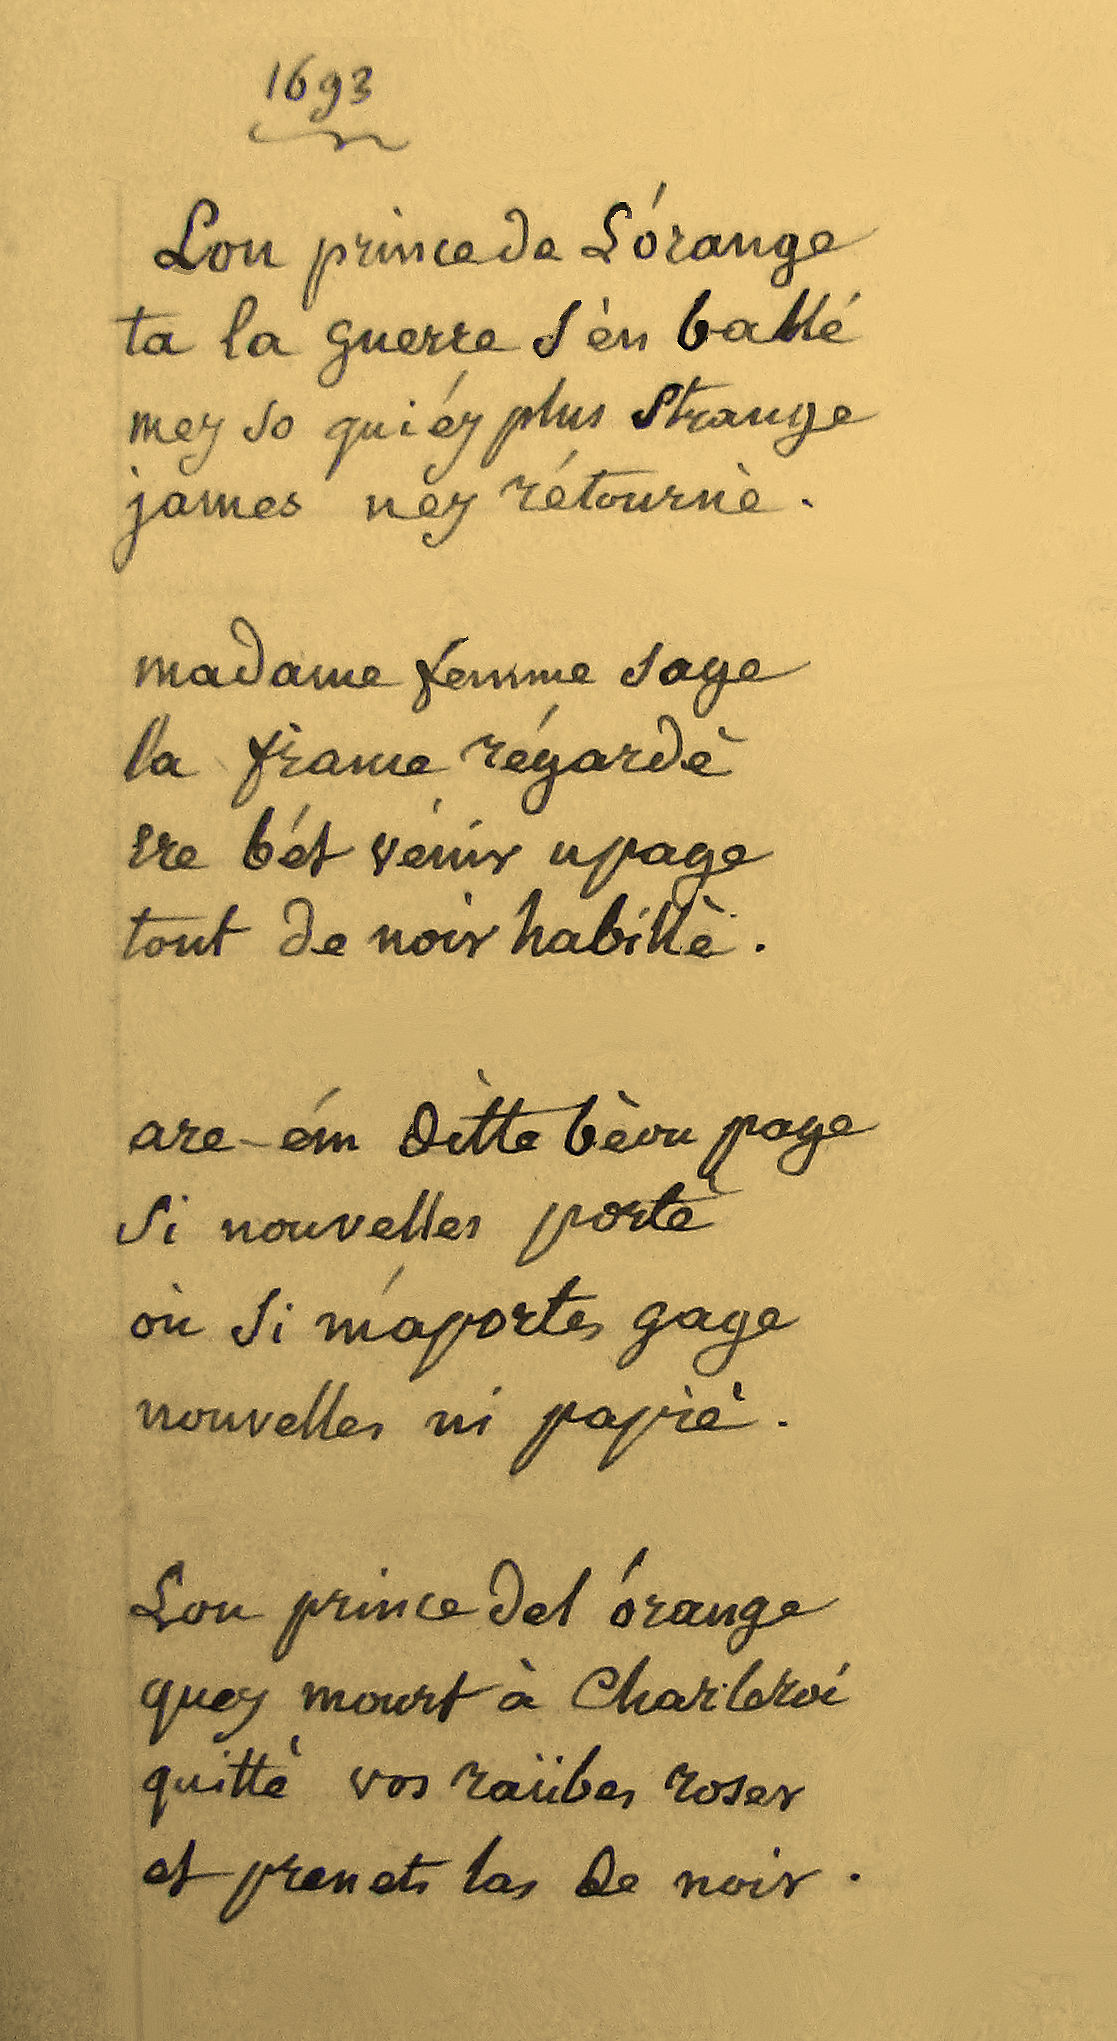 1693
Lou prince de L'órange
ta la guerre s'èn ballé
mey so qui éy plus strange
james ney rétournè.
madame femme sage
la france régardè
ere bét vénir u page
tout de noir habillè.
are-ém dìtte bèou page
si nouvelles portè
où si m'aportes gage
nouvelles ni papiè.
Lou prince del órange
quey mourt à Charleroi
quittè vos raübes roses
et prenets las de noir.